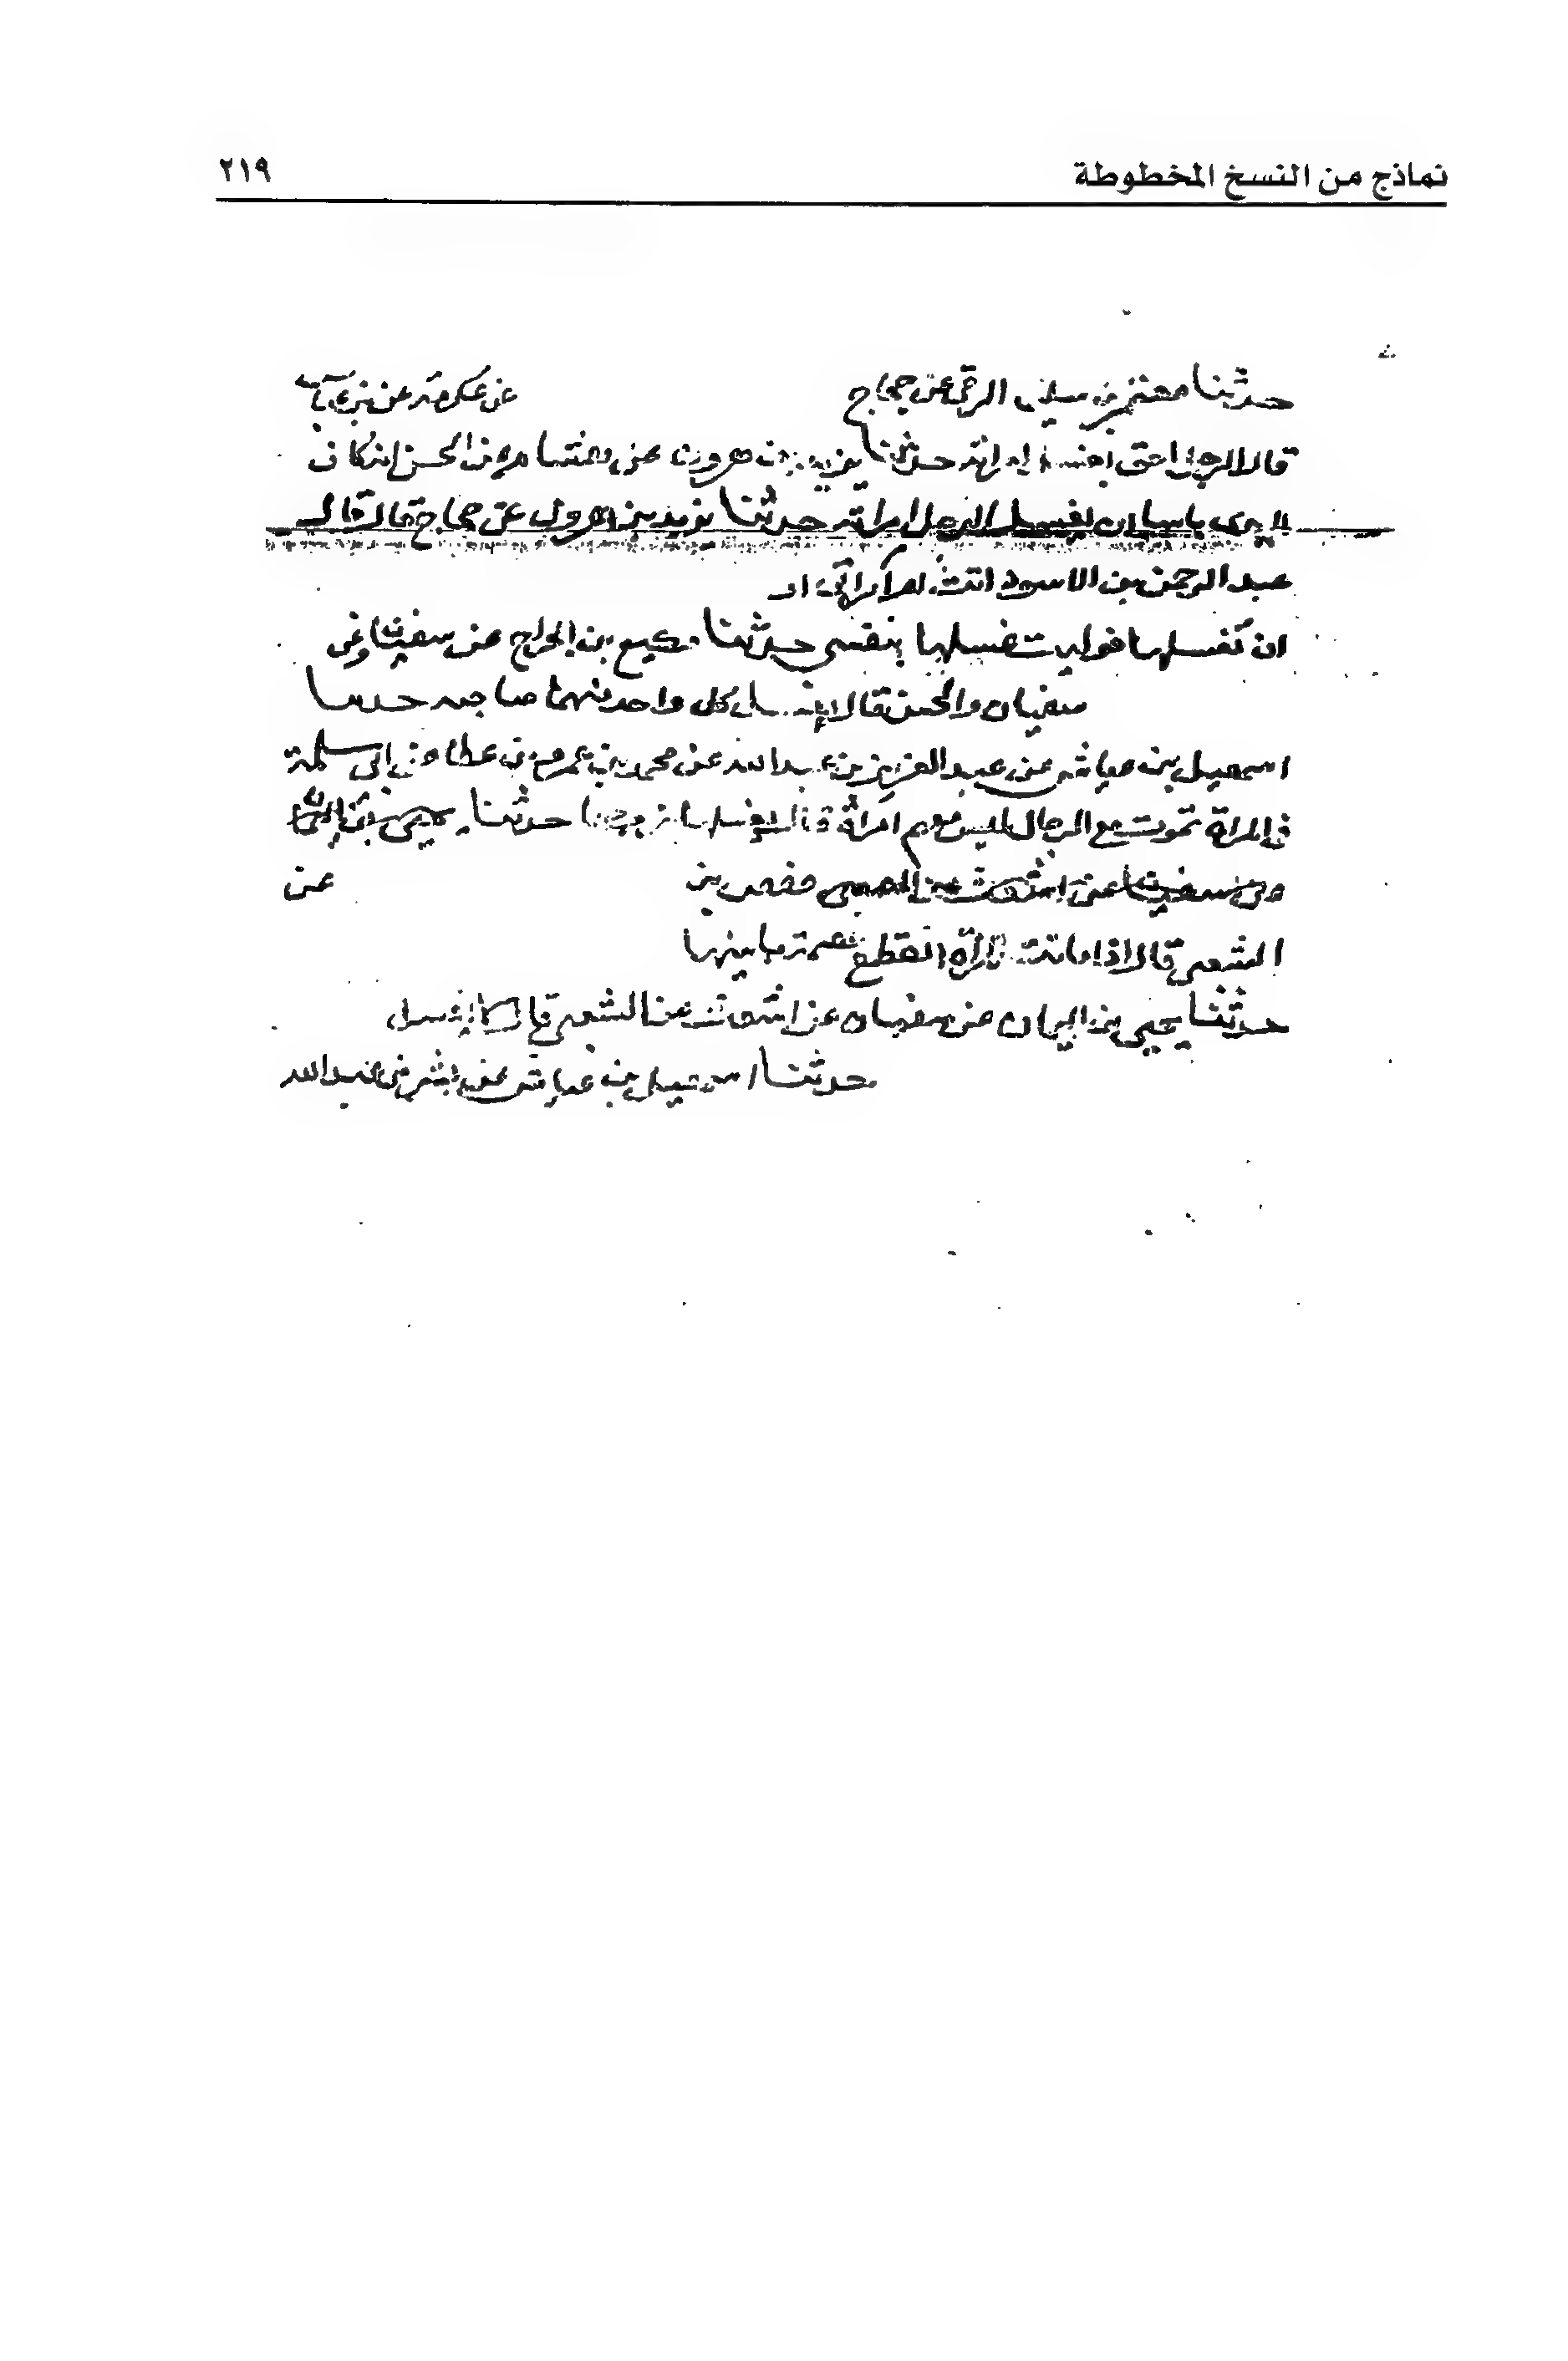 نماذج من النسخ المخطوطة ٢١٩
حدثنا معتمر بن سليمن الرقى عن حجاج عن عكرمة عن بن عباس
قال الرجل احق بغسل امراته حدثنا يزيد بن هرون عن هشام عن الحسن انه كان
لا يرى باسا ان يغسل الرجل امراته حدثنا يزيد بن هرون عن حجاج قال قال
عبد الرحمن بن الاسود
ان تغسلها فوليت غسلها بنفسي حدثنا وكيع بن الجراح عن سفين عن
سفيان والحسن قالا يغسل كل واحد منهما صاحبه حدثنا
اسمعيل بن عياش عن عبد العزيز بن عبد الله عن محمد بن عمرو بن عطا عن ابي سلمة
في المراة تموت مع الرجال ليس معهم امراة قال يغسلها زوجها حدثنا يحيى بن
عن سفين عن اشعث عن حفص بن عن
الشعبي قال اذا ماتت المراة انقطع عصمة ما بينها
حدثنا يحيى بن اليمان عن سفيان عن اشعث عن الشعبي قال لا يغسل
حدثنا اسمعيل بن عياش عن بشر بن عبد الله